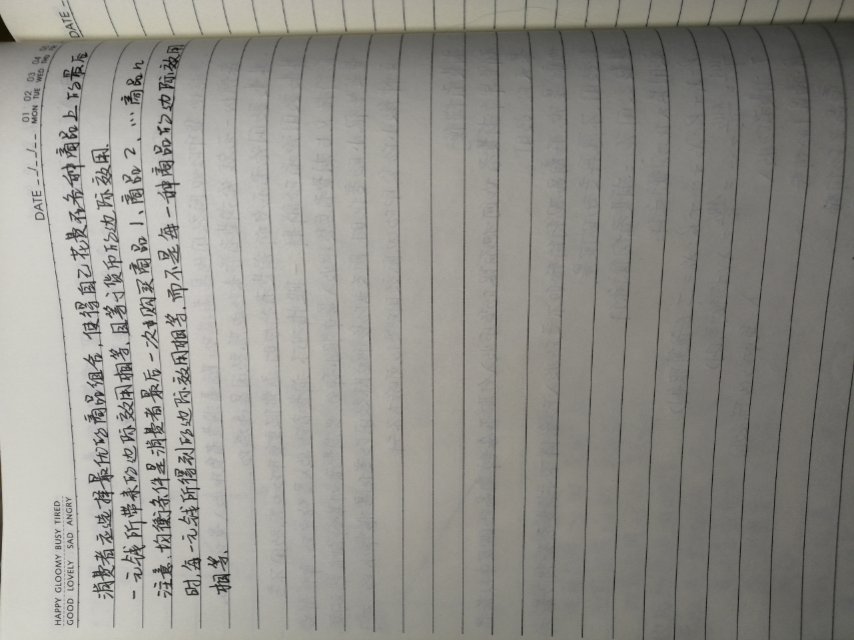 HAPPY GLOOMY BUSY TIRED
GOOD LOVELY SAD ANGRY
DATE --/--/--
01 02 03 04 05
MON TUE WED THU
DATE
消费者应选择最优的商品组合,使得自己花费在各种商品上的最后
一元钱所带来的边际效用相等,且等于货币的边际效用
注意:均衡条件是消费者最后一次购买商品1、商品2、…商品n
时,每一元钱所得到的边际效用相等,而不是每一种商品的边际效用
相等.